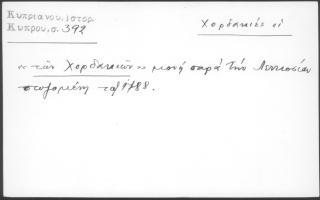 Κυπριανου. Ιστορ.
Κυπρου, σ. 392
Χορδακιές οἱ
« τῶν Χορδακιῶν » μονή παρά τήν Λευκωσίαν
σωζομένη τό 1788.